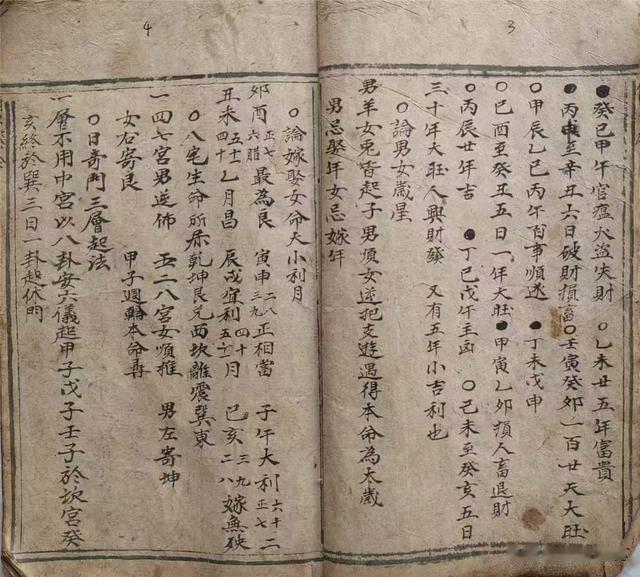 3
●癸巳甲午官瘟火盜失財　○乙未廿五年富貴
●丙申至辛丑六日破財損畜○壬寅癸卯一百廿天大旺
○甲辰乙巳丙午百事順遂　●丁未戊申
○己酉至癸丑五日一年大旺●甲寅乙卯損人畜退財
○丙辰廿年吉　●丁巳戊午主凶　○己未至癸亥五日
三十年大旺人興財發　又有五年小吉利也
○論男女歲星
男羊女兔皆起子男順女逆把支遊遇得本命為太歲
男忌娶年女忌嫁年
4
○論嫁娶女命大小利月
卯酉正七六腊最為良　寅申二八三九正相當　子午大利六十二正七
丑未五十一四十乙月昌　辰戌宜利四十五十一月　巳亥三九二八嫁無殃
○八宅生命所屬乾坤艮兌西坎離震巽東
一四七宮男逆佈　五二八宮女順推　男左寄坤
女右寄艮　甲子週輪本命尋
○日奇門三層起法
一層不用中宮以八卦安六儀起甲子戊子壬子於坎宮癸
亥終於巽三日一卦起休門